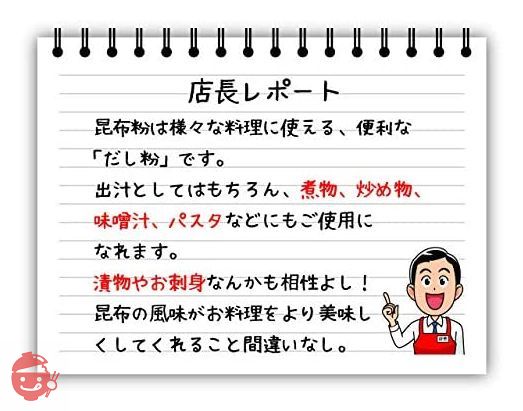 店長レポート
昆布粉は様々な料理に使える、便利な
「だし粉」です。
出汁としてはもちろん、煮物、炒め物、
味噌汁、パスタなどにもご使用に
なれます。
漬物やお刺身なんかも相性よし！
昆布の風味がお料理をより美味し
くしてくれること間違いなし。